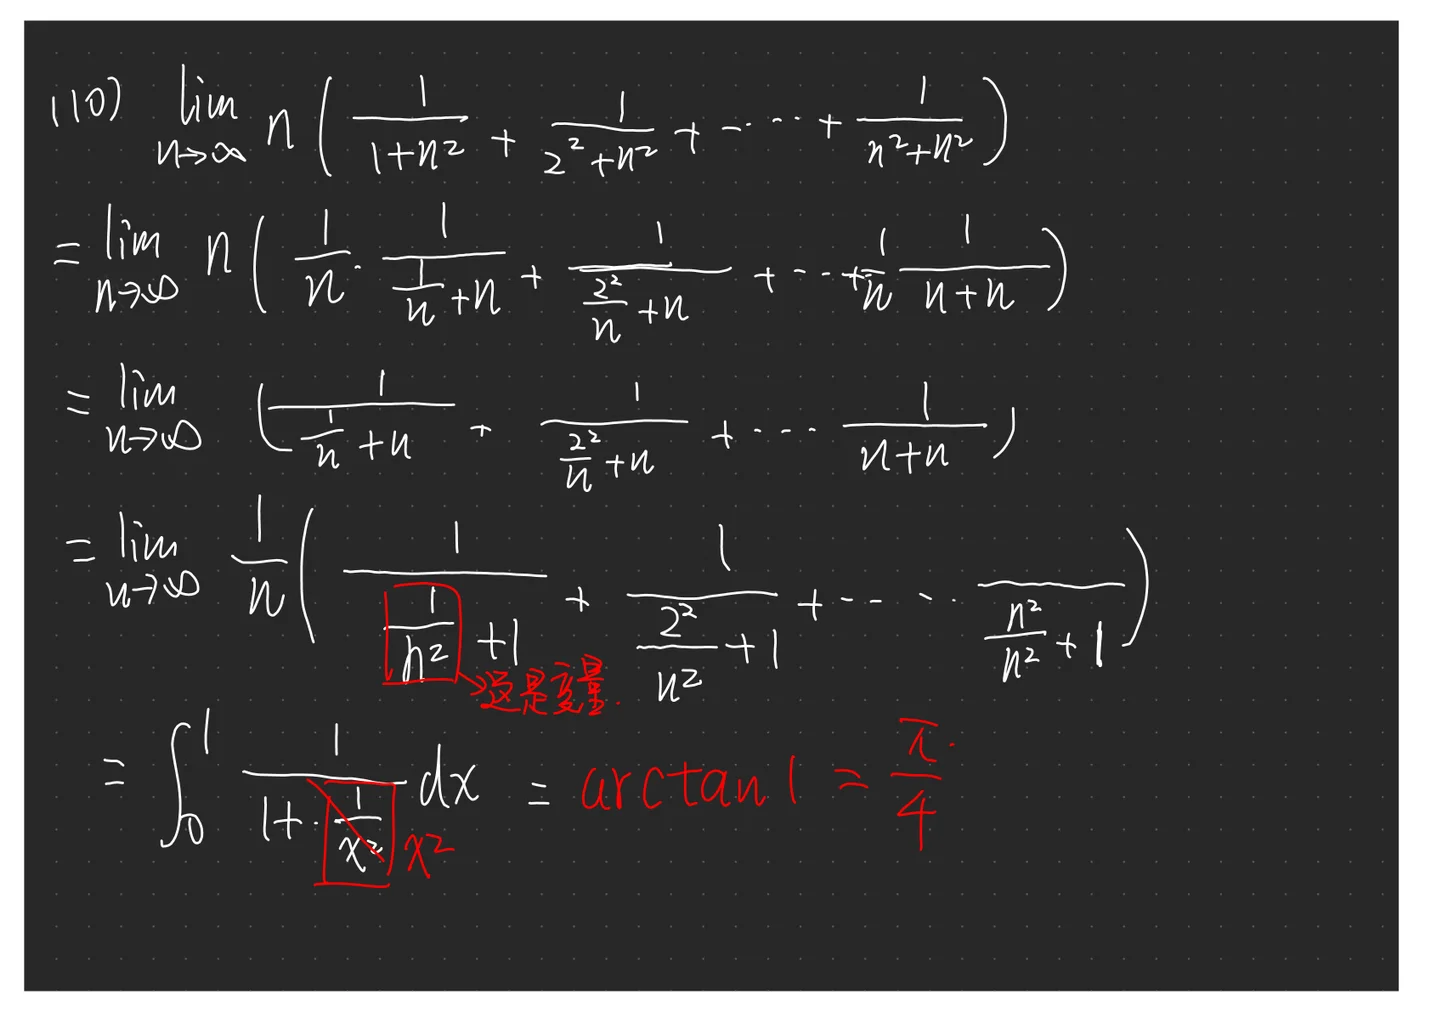 (10) lim n→∞ n( 1/(1+n²) + 1/(2²+n²) + ⋯⋯ + 1/(n²+n²) )
= lim n→∞ n( 1/n · 1/(1/n +n) + 1/(2²/n +n) + ⋯ + 1/n 1/(n+n) )
= lim n→∞ ( 1/(1/n +n) + 1/(2²/n +n) + ⋯ 1/(n+n) )
= lim n→∞ 1/n ( 1/(1/n² +1) + 1/(2²/n² +1) + ⋯⋯ /(n²/n² +1) )
→这是变量.
= ∫₀¹ 1/(1+·1/x²) dx = arctan1 = π/4
x²